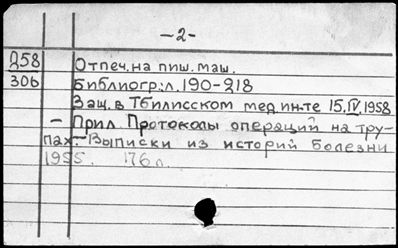 -2-
Д58 Отпеч. на пиш. маш.
306 Библиогр: л. 190-218
Защ. в Тбилисском мед. ин-те 15.IV.1958
- Прил Протоколы операций на тру-
пах.- Выписки из историй болезни
1955. 176 л.